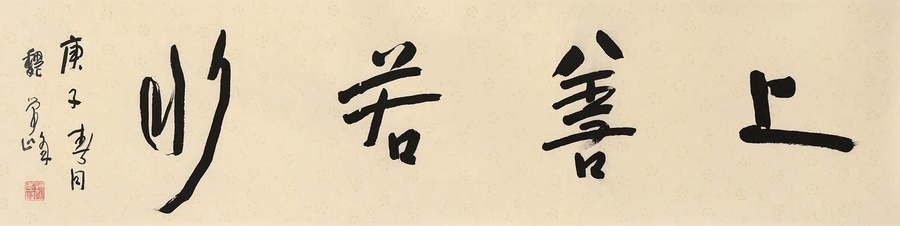 上善若水
庚子春月
魏 峰